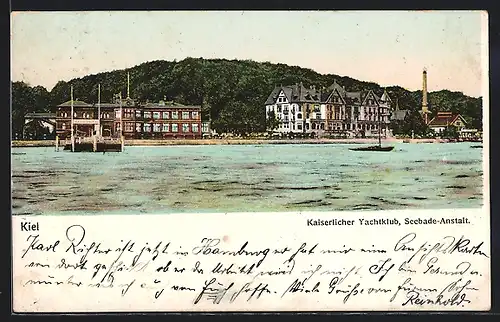 Kiel
Kaiserlicher Yachtklub, Seebade-Anstalt.
Karl Richter ist jetzt in Hamburg er hat mir eine Ansichtskarten
von dort geschickt ob er da Arbeit wird ich nicht. Ich bin Gesund
munter auch von Euch hoffe. Viele Grüße von Eurem Sohn
Reinhold.